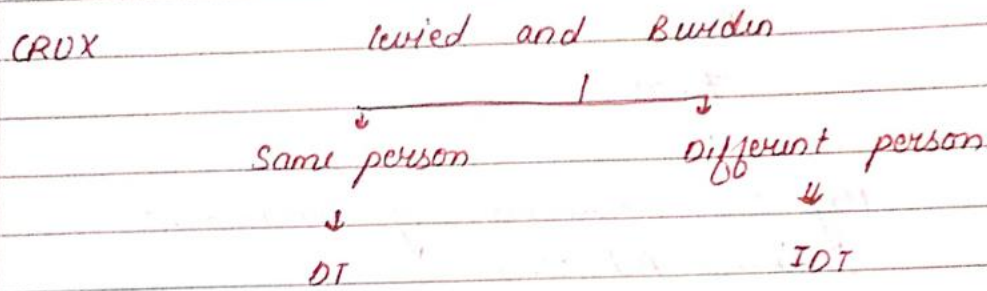 CRUX levied and Burden
Same person Different person
DT IDT